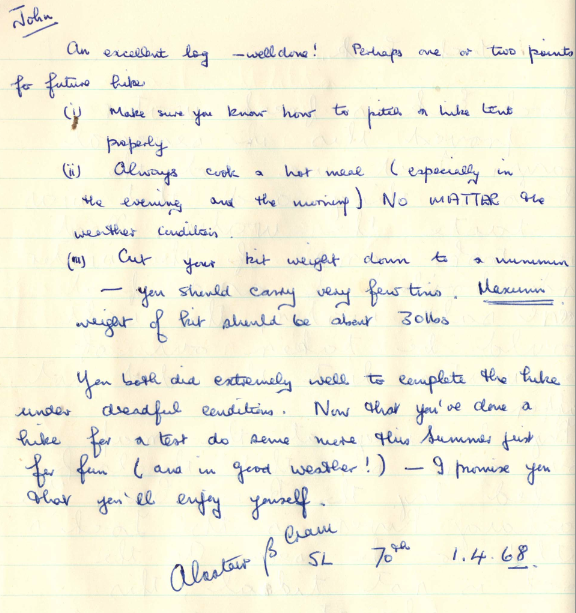 John
An excellent log - well done! Perhaps one or two points
for future hike
(i) Make sure you know how to pitch a hike tent
properly
(ii) Always cook a hot meal (especially in
the evening and the morning) NO MATTER the
weather condition.
(iii) Cut your kit weight down to a minimum
- you should carry very few tins. Maximum
weight of kit should be about 30lbs
You both did extremely well to complete the hike
under dreadful conditions. Now that you've done a
hike for a test do some more this Summer just
for fun (and in good weather!) - I promise you
that you'll enjoy yourself.
Alastair B
SL 70th 1.4.68.